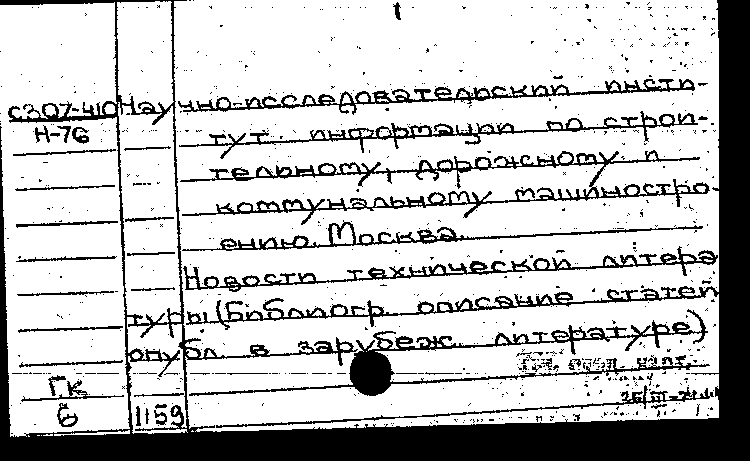 1
С307-410 Научно-исследовательский инсти-
Н-76 тут информации по строи-
тельному, дорожному и
коммунальному машиностро-
ению. Москва.
Новости технической литера
туры (Библиогр. описание статей
опубл. в зарубеж. литературе)
ГК
б 1159